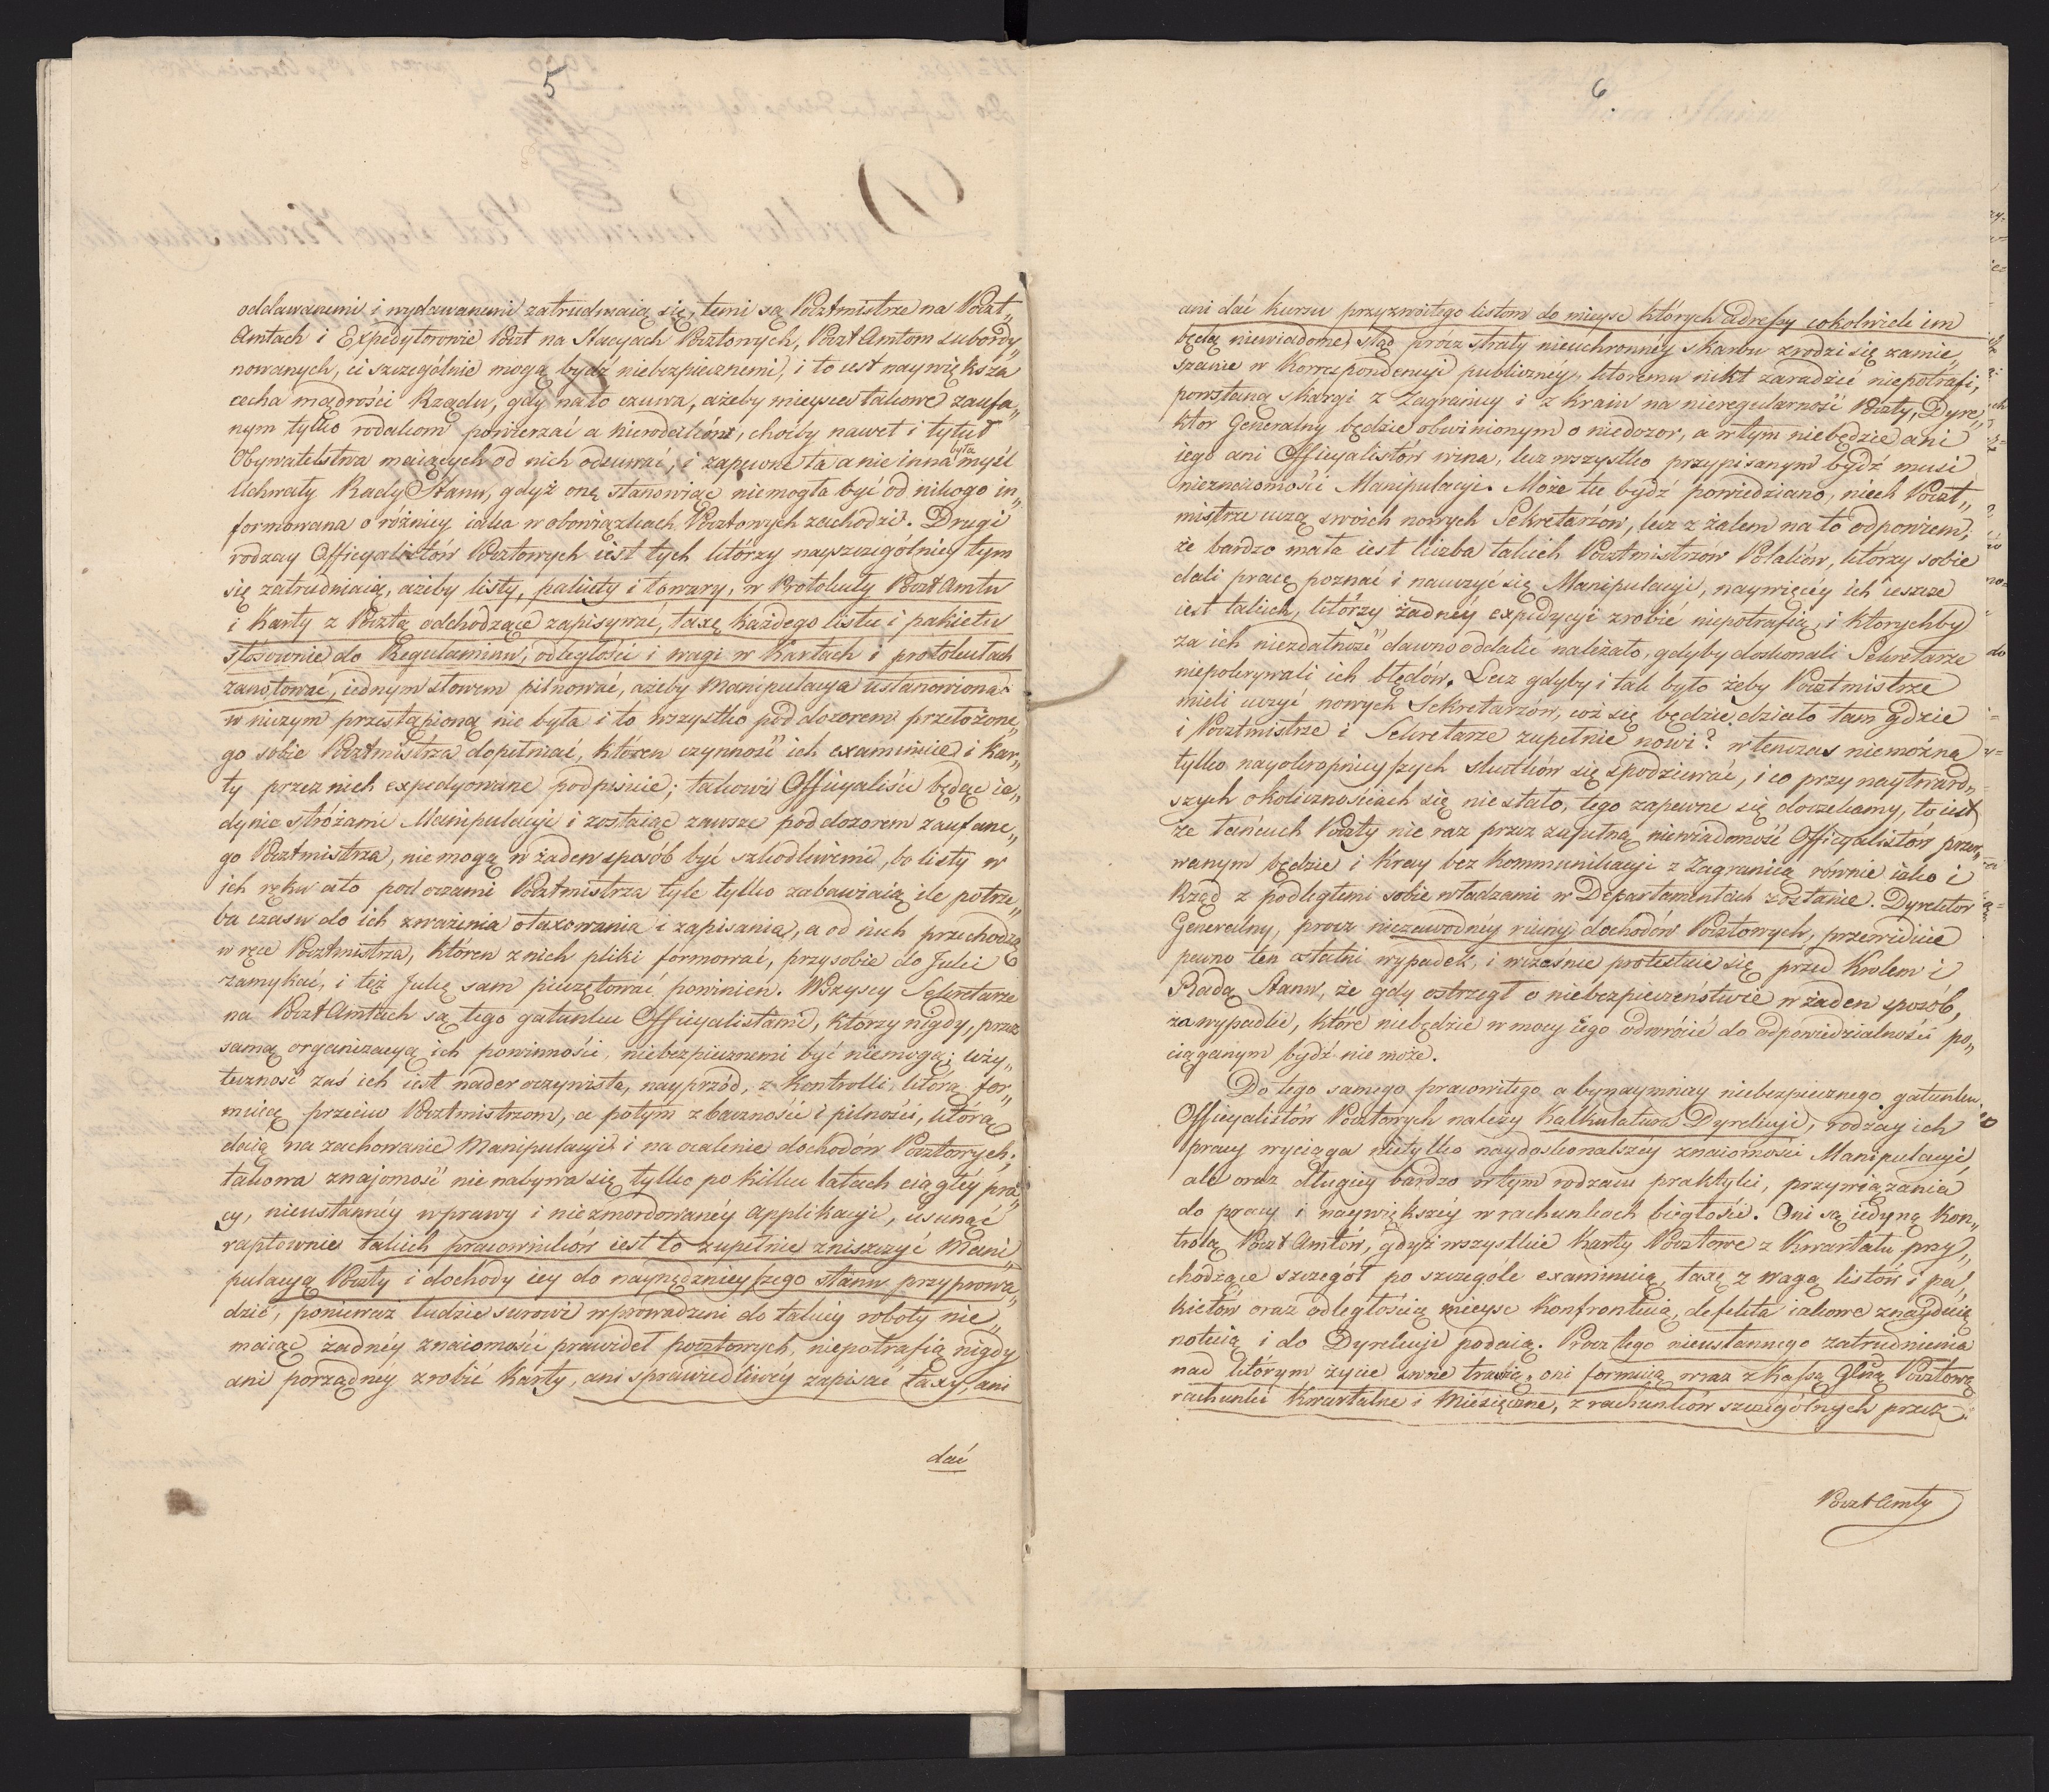 5
oddawaniemi i wydawaniemi zatrudniaią się, temi są Pocztmistrze na Poczt„
Amtach i Expedytorowie Poczt na Stacyach Pocztowych, PocztAmtom subordy„
nowanych, ci szczególnie mogą bydź niebezpiecznemi, i to iest naywiększa
cecha mądrości Rządu, gdy na to czuwa, ażeby mieysce takowe zaufa„
nym tylko rodakom powierzać a nierodaków, choćby nawet i tytuł
Obywatelstwa maiących od nich odsuwać, i zapewne ta a nie inna była myśl
Uchwały Rady Stanu, gdyż onę stanowiąc niemogła być od nikogo in„
formowana o różnicy iaka w obowiązkach Pocztowych zachodzi. Drugi
rodzay Officyalistów Pocztowych iest tych którzy nayszczególniey tym
się zatrudniaią, ażeby listy, pakiety i towary, w Protokuły PocztAmtu
i Karty z Pocztą odchodzące zapisywać, taxę każdego listu i pakietu
stósownie do Regulaminu, odległości i wagi w Kartach i protokułach
zanotować, iednym słowem pilnować, ażeby Manipulacya ustanowiona
w niczym przestąpioną nie była i to wszystko pod dozorem przełożone„
go sobie Pocztmistrza dopełniać, któren czynność ich examinuie i Kar„
ty przez nich expedyowane podpisuie; takowi Officyaliści będąc ie„
dynie stróżami Manipulacyi i zostaiąc zawsze pod dozorem zaufane„
go Pocztmistrza, nie mogą w żaden sposób być szkodliwemi, bo listy w
ich ręku a to pod oczami Pocztmistrza tyle tylko zabawiaią ile potrze„
ba czasu do ich zważenia otaxowania i zapisania, a od nich przechodzą
w ręce Pocztmistrza, któren z nich pliki formować, przy sobie do Julki
zamykać, i też Julkę sam pieczętować powinien. Wszyscy Sekretarze
na PocztAmtach są tego gatunku Officyalistami, którzy nigdy, przez
samą organizacyą ich powinności, niebezpiecznemi być niemogą; uży„
teczność zaś ich iest nader oczywista, nayprzód, z Kontrolli, którą for„
muią przeciw Pocztmistrzom, a potym z baczności i pilności, którą
daią na zachowanie Manipulacyi i na ocalenie dochodów Pocztowych.
takowa znajomość nie nabywa się tylko po kilku latach ciągłéy pra„
cy, nieustannéy wprawy i niezmordowanéy applikacyi, usunąć
raptownie takich pracowników iest to zupełnie zniszczyć Mani„
pulacyą Poczty i dochody iey do naynędznieyszego stanu przyprowa„
dzić, ponieważ ludzie surowi wprowadzeni do takiey roboty nie„
maiąc żadnéy znaiomości prawideł pocztowych, niepotrafią nigdy
ani porządnéy zrobić Karty, ani sprawiedliwéy zapisać taxy, ani
dać
6.
ani dać kursu przyzwoitego listom do mieysc których adressy cokolwiek im
będą niewiadome, stąd prócz straty nieuchronnéy skarbu zrodzi się zamie„
szanie w Korrespondencyi publiczney, któremu nikt zaradzić niepotrafi,
powstaną skargi z Zagranicy i z kraiu na nieregularność Poczty, Dyre„
ktor Generalny będzie obwinionym o niedozor, a w tym niebędzie ani
iego ani Officyalistów wina, lecz wszystko przypisanym bydź musi
nieznaiomości Manipulacyi. Może tu bydź powiedziano, niech Poczt„
mistrze uczą swoich nowych Sekretarzów, lecz z żalem na to odpowiem;
że bardzo mała iest liczba takich Pocztmistrzów Polaków, którzy sobie
dali pracę poznać i nauczyć się Manipulacyi, naywięcéy ich ieszcze
iest takich, którzy żadnéy expedycyi zrobić niepotrafią, i którychby
za ich niezdatność dawno oddalić należało, gdyby doskonali Sekretarze
niepokrywali ich błędów. Lecz gdyby i tak było żeby Pocztmistrze
mieli uczyć nowych Sekretarzów, cóż się będzie działo tam gdzie
i Pocztmistrze i Sekretarze zupełnie nowi? w tenczas niemożna
tylko nayokropnieyszych skutków się spodziewać, i co przy naytward„
szych okolicznościach się nie stało, tego zapewne się doczekamy, to iest
że łańcuch Poczty nie raz przez zupełną niewiadomość Officyalistów przer„
wanym będzie i Kray bez kommunikacyi z Zagranicą równie iako i
Rząd z podległemi sobie władzami w Departamentach zostanie. Dyrektor
Generalny, prócz niezawodnéy ruiny dochodów Pocztowych, przewiduie
pewno ten ostatni wypadek, i wcześnie protestuie się przed Krolem i
Radą Stanu, że gdy ostrzegł o niebezpieczeństwie w żaden sposób,
za wypadki, które niebędzie w mocy iego odwrócić do odpowiedzialności po„
ciąganym bydź nie może.
Do tego samego pracowitego a bynaymniey niebezpiecznego gatunku
Officyalistów Pocztowych należy Kalkulatura Dyrekcyi, rodzay ich
pracy wyciąga nietylko naydoskonalszéy znaiomości Manipulacyi
ale oraz długiey bardzo w tym rodzaiu praktyki, przywiązania
do pracy i naywiększéy w rachunkach biegłości. Oni są iedyną Kon„
trolą PocztAmtów, gdyż wszystkie Karty Pocztowe z Kwartału przy„
chodzące szczegół po szczególe examinuią, taxę z wagą listów i pa„
kietów oraz odległością mieysc konfrontuią, defekta iakowe znayduią
notuią i do Dyrekcyi podaią. Prócz tego nieustannego zatrudnienia
nad którym życie swoie trawią, oni formuią wraz z Kassą Głną Pocztową
rachunki Kwartalne i Miesięczne, z rachunków szczególnych przez
PocztAmty